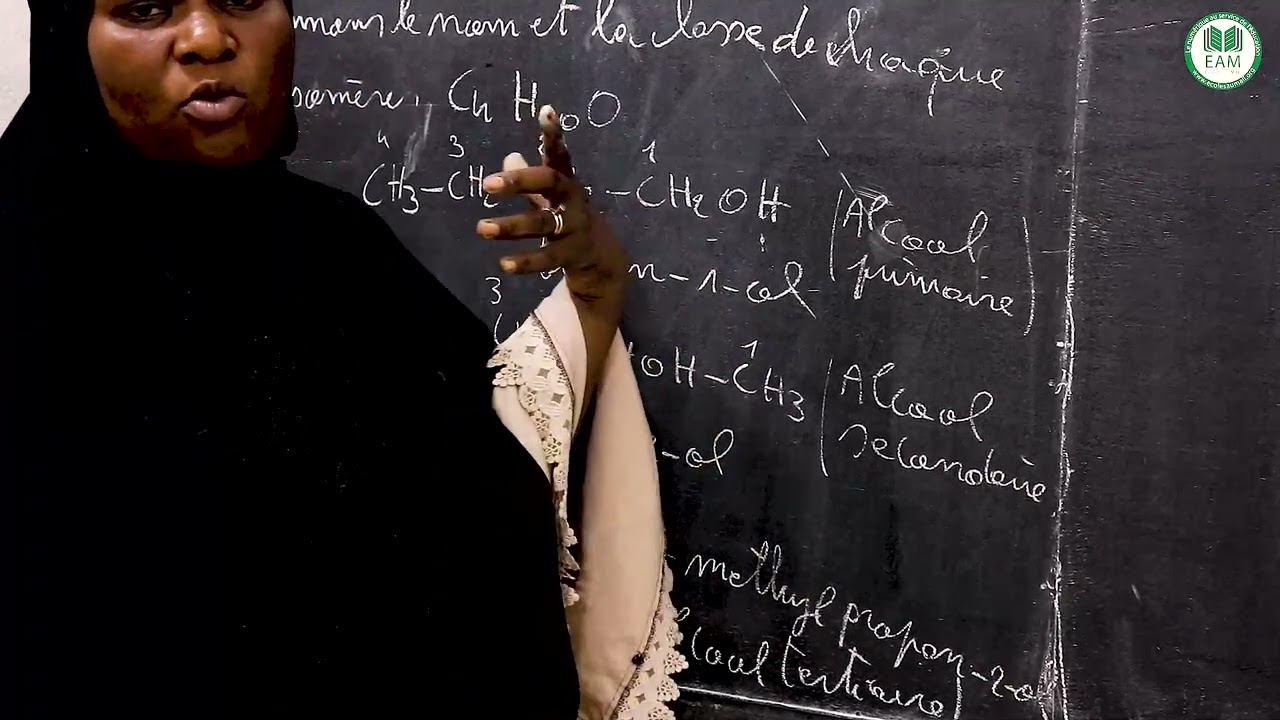 le nom et la classe de chaque
isomère. C4H10O
4 3 1
CH3-CH2 -CH2OH (Alcool
primaire)
n-1-ol
3 1
OH-CH3 (Alcool
secondaire
-ol
methylpropan-2-ol
cool tertiaire)
Le numérique au service de l'éducation
EAM
www.ecolesaumali.org